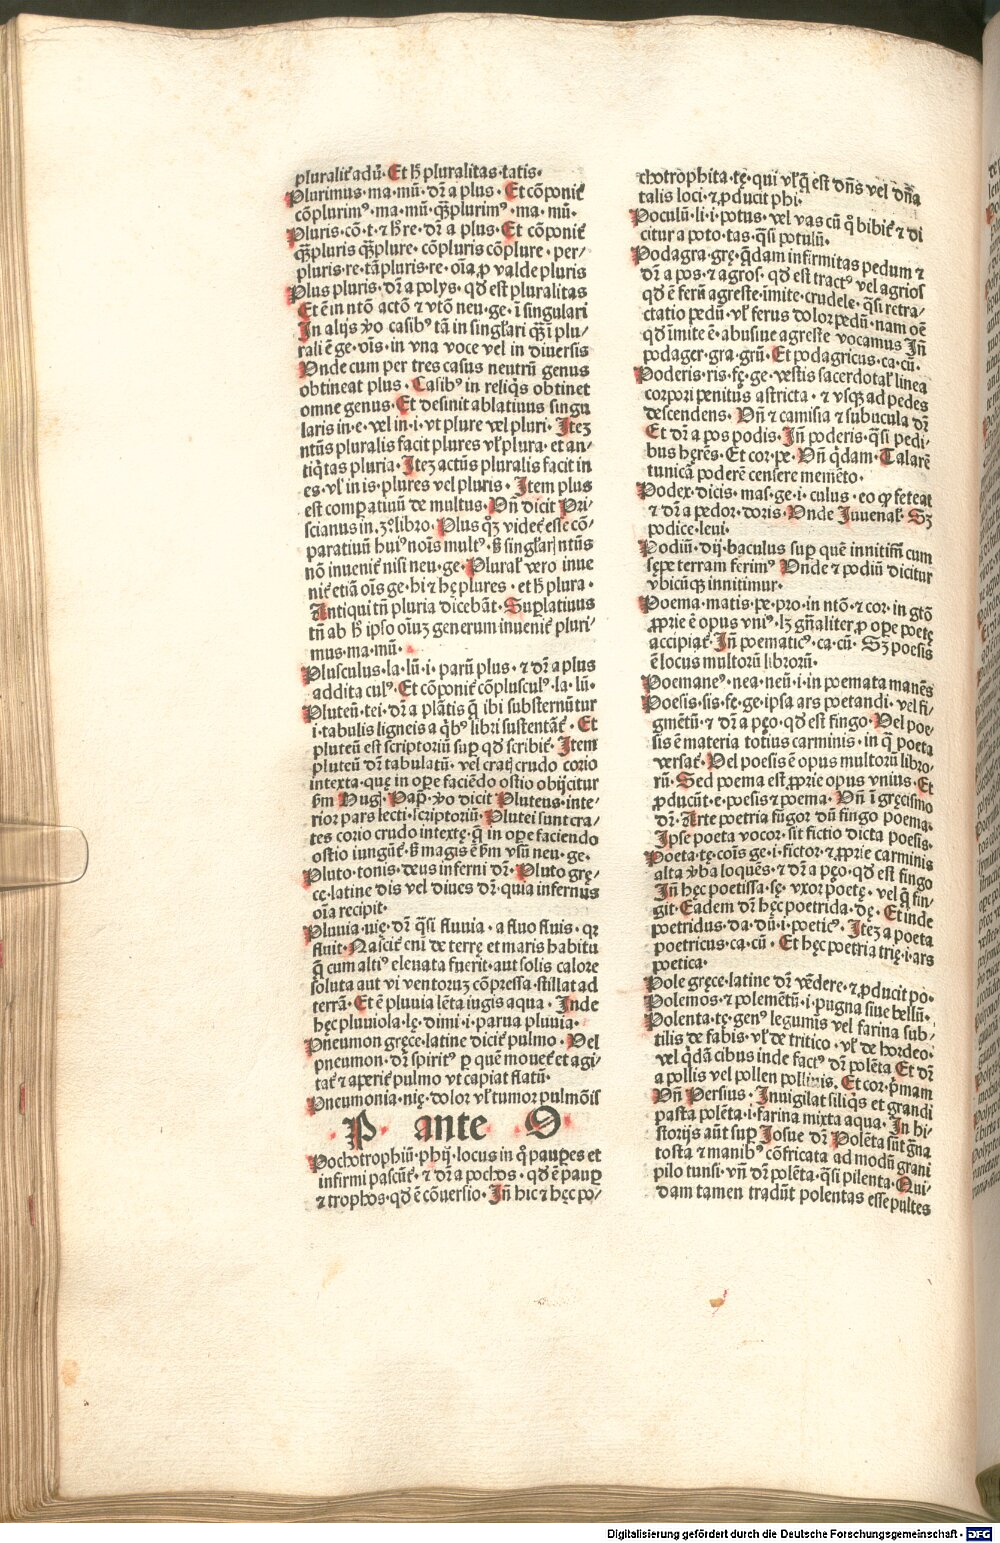 pluralit᷑ adū·Et ħ pluralitas·tatis·
Plurimus·ma·mū·dr̄ a plus·Et cōponit᷑
cōplurimꝰ·ma·mū·qȝplurimꝰ·ma·mū·
Pluris·cō·t·⁊ ħ re·dr̄ a plus·Et cōponit᷑
qȝpluris qȝplure·cōpluris cōplure·per/
pluris·re·tāpluris·re·oīa ꝓ valde pluris
Plus pluris·dr̄ a polys·qđ est pluralitas
Et ē in ntō actō ⁊ vtō neu·ge·ī singulari
In alijs ꝟo casibꝰ tā in singl̓ari qȝ ī plu/
rali ē ge·oīs·in vna voce vel in diuersis
Vnde cum per tres casus neutrū genus
obtineat plus·Casibꝰ in reliq̇s obtinet
omne genus·Et desinit ablatiuus singu
laris in·e·vel in·i·vt plure vel pluri·Iteȝ
ntūs pluralis facit plures vl̓ plura·et an/
tiq̇tas pluria·Iteȝ actūs pluralis facit in
es·vl̓ in is·plures vel pluris·Item plus
est comparatiuū de multus·Vn̄ dicit Pri/
scianus in·ȝ°libro·Plus qȝ videt᷑ esse cō/
paratiuū huiꝰ noīs multꝰ·ß singl̓ar ntūs
nō inuenit᷑ nisi neu·ge·Plural̓ vero inue
nit᷑ etiā oīs ge·hi ⁊ hę plures·et ħ plura·
Antiqui tn̄ pluria dicebāt·Suꝑlatiuus
tn̄ ab ħ ipso oīuȝ generum inuenit᷑ pluri/
mus·ma·mū·
Plusculus·la·lū·i·parū plus·⁊ dr̄ a plus
addita culꝰ·Et cōponit᷑ cōplusculꝰ·la·lū·
Pluteū·tei·dr̄ a plātis q̄ ibi substernūtur
i·tabulis ligneis a q̇bꝰ libri sustentāt᷑·Et
pluteū est scriptoriū suꝑ qđ scribit᷑·Item
pluteū dr̄ tabulatū·vel crat crudo corio
intexta·quę in oꝑe faciēdo ostio obijcitur
ẜm Hug·Pap̄·ꝟo dicit Pluteus·inte/
rior pars lecti·scriptoriū·Plutei sunt cra/
tes corio crudo intextę·q̄ in oꝑe faciendo
ostio iungūt᷑·ß magis ē ẜm vsū neu·ge·
Pluto·tonis·deus inferni dr̄·Pluto gre/
ce·latine dis vel diues dr̄·quia infernus
oīa recipit·
Pluuia·uię·dr̄ qͣsi fluuia·a fluo fluis·qꝛ
fluit·Nascit᷑ eni de terrę et maris habitu
q̄ cum altiꝰ eleuata fuerit·aut solis calore
soluta aut vi ventoruȝ cōpressa·stillat ad
terrā·Et ē pluuia lēta iugis aqua·Inde
hęc pluuiola·lę·dimi·i·parua pluuia·
Pneumon gręce·latine dicit᷑ pulmo·Vel
pneumon·dr̄ spiritꝰ ꝑ quē mouet᷑ et agi/
tat᷑ ⁊ aperit᷑ pulmo vt capiat flatū·
Pneumonia·nię·dolor vl̓ tumor pulmōis
P ante O
Pochotrophiū·phij·locus in q̊ pauꝑes et
infirmi pascunt᷑·⁊ dr̄ a pochos·qđ ē pauꝑ
⁊ trophos·qđ ē cōuersio·In̄ hic ⁊ hęc po/
chotrophita·tę·qui vl̓ q̄ est dn̄s vel dn̄a
talis loci·⁊ ꝓducit phi·
Poculū·li·i·potus·vel vas cū q̊ bibit᷑ ⁊ di
citur a poto·tas·qͣsi potulū·
Podagra·grę·q̄dam infirmitas pedum ⁊
dr̄ a pos·⁊ agros·qđ est tractꝰ vel agrios
qđ ē ferū agreste·īmite·crudele·qͣsi retra/
ctatio pedū·vl̓ ferus dolor pedū·nam oē
qđ īmite ē·abusiue agreste vocamus In̄
podager·gra·grū·Et podagricus·ca·cū·
Poderis·ris·fę·ge·vestis sacerdotal̓ linea
corpori penitus astricta·⁊ vsqȝ ad pedes
descendens·Vn̄ ⁊ camisia ⁊ subucula dr̄
Et dr̄ a pos podis·In̄ poderis·qͣsi pedi/
bus hęrēs·Et cor·pe·Vn̄ q̇dam·Talarē
tunicā poderē censere memēto·
Podex·dicis·mas·ge·i·culus·eo ꝙ feteat
⁊ dr̄ a pedor·doris·Vnde Iuuenal̓·Sȝ
podice·leui·
Podiū·dij·baculus suꝑ quē innitim̄ cum
sępe terram ferimꝰ Vnde ⁊ podiū dicitur
vbicūqȝ innitimur·
Poema·matis·pe·pro·in ntō·⁊ cor·in gtō
ꝓprie ē opus vniꝰ·lȝ gn̄aliter ꝓ oꝑe poetę
accipiat᷑·In̄ poematicꝰ·ca·cū·Sȝ poesis
ē locus multorū librorū·
Poemaneꝰ·nea·neū·i·in poemata manēs
Poesis·sis·fę·ge·ipsa ars poetandi·vel fi/
gmētū·⁊ dr̄ a pęo·qđ est fingo·Vel poe/
sis ē materia totius carminis·in q̄ poeta
versat᷑·Vel poesis ē opus multorū libro/
rū·Sed poema est ꝓprie opus vnius·Et
ꝓducūt·e·poesis ⁊ poema·Vn̄ ī gręcismo
dr̄·Arte poetria fūgor dū fingo poema·
Ipse poeta vocor·sit fictio dicta poesis·
Poeta·tę·cōis ge·i·fictor·⁊ ꝓprie carminis
alta ꝟba loquēs·⁊ dr̄ a pęo·qđ est fingo
In̄ hęc poetissa·sę·vxor poetę·vel q̄ fin/
git·Eadem dr̄ hęc poetrida·dę·Et inde
poetridus·da·dū·i·poeticꝰ·Iteȝ a poeta
poetricus·ca·cū·Et hęc poetria trię·i·ars
poetica·
Pole gręce·latine dr̄ vēdere·⁊ ꝓducit po·
Polemos·⁊ polemētū·i·pugna siue bellū·
Polenta·tę·genꝰ legumis vel farina sub/
tilis de fabis·vl̓ de tritico·vl̓ de hordeo·
vel q̇dā cibus inde factꝰ dr̄ polēta Et dr̄
a pollis vel pollen pollinis·Et cor·pmam
Vn̄ Persius·Inuigilat siliq̇s et grandi
pasta polēta·i·farina mixta aqua·In hi/
storijs aūt suꝑ Iosue dr̄ Polēta sūt gn̄a
tosta ⁊ manibꝰ cōfricata ad modū grani
pilo tunsi·vn̄ dr̄ polēta·qͣsi pilenta·Qui/
dam tamen tradūt polentas esse pultes
Digitalisierung gefördert durch die Deutsche Forschungsgemeinschaft - DFG